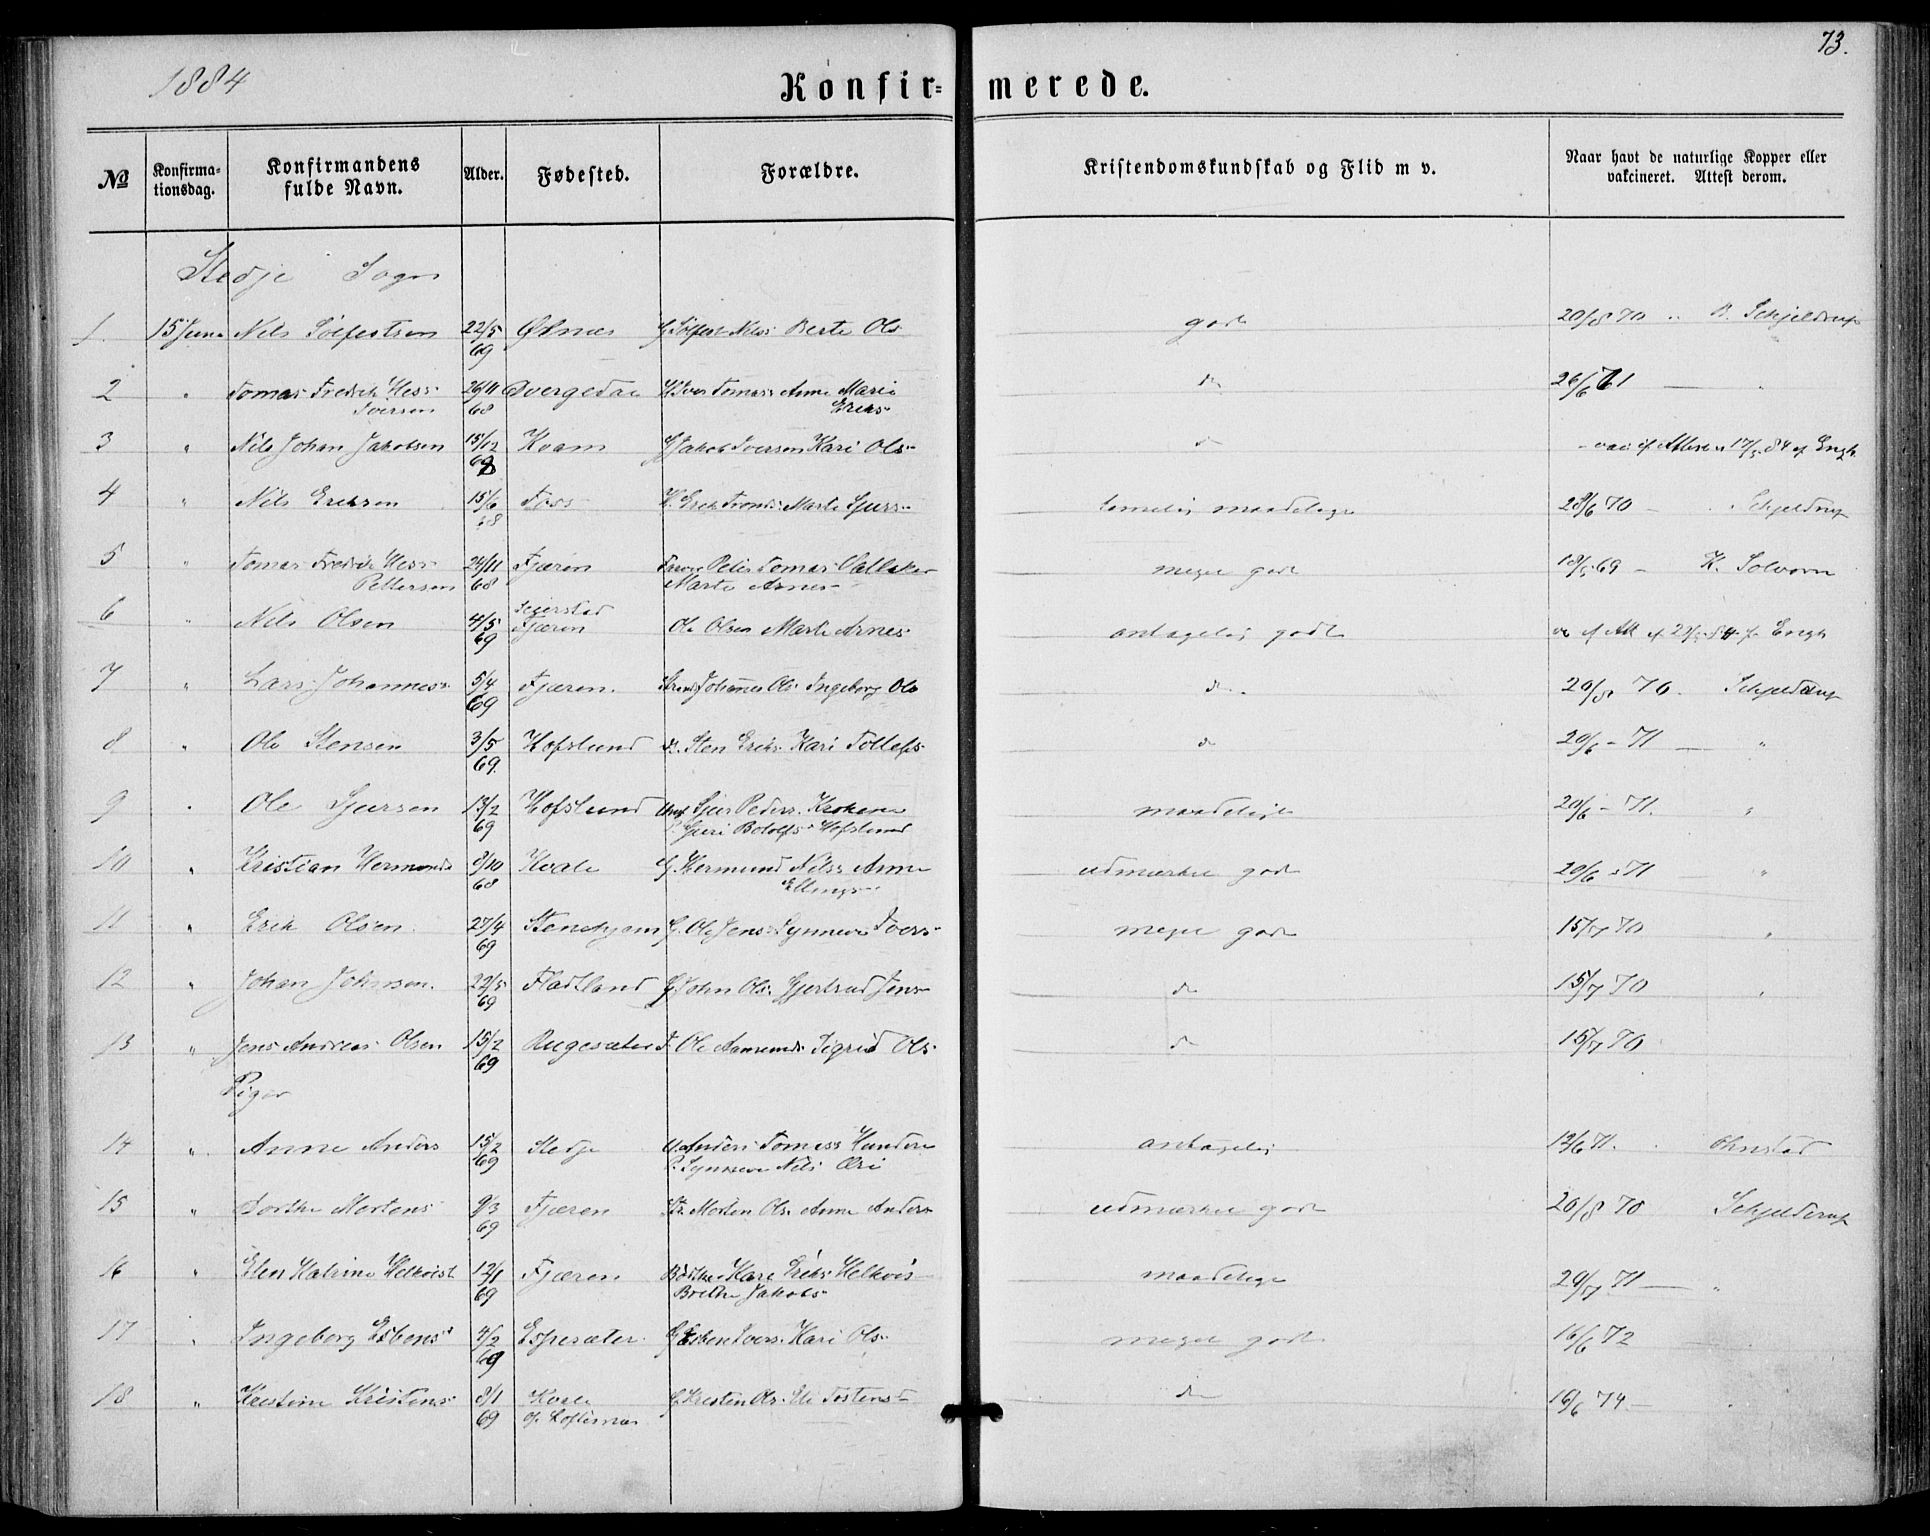 1884
73.
Konfirmerede.
№ Konfirmationsdag. Konfirmandens fulde Navn. Alder. Fødested. Forældre. Kristendomskundskab og Flid m v. Naar havt de naturlige Kopper eller vakcineret. Attest derom.
Stedje Sogn
1. 15 Juni Nils Solfestsen 22/5 69 Øknæs Solfest Nils: Berte Ols godt 20/8 70 B. Schjelderup
2 " Tomas Fredrik Hess: Iversen 26/11 68 Øvergedae Iver Tomas: Anne Marie Eriks: do 26/6 61 — "
3 " Nils Johan Jakobsen 15/12 68 Kvam G Jakob Iversen Kari Ols: do vac if Attest 17/5 84 af Engh
4 " Nils Eriksen 15/6 68 Foss Erik Marte Sjurs: temelig maadelige 28/6 70 — Schjeldrup
5 " Tomas Fredrik Hess: Pettersen 24/11 68 Fjæren Peter Tomas: Marte Arnes: meget godt 18/5 69 — K. Solvorn
6 " Nils Olsen 4/5 69 Seierstad Fjæren Ole Olsen Marte Arnes: antagelig godt af 84 Engh
7 " Lars Johannes: 5/4 69 Fjæren. Johannes Ols: Ingeborg Ols do. 20/8 70. Schjelderup
8 " Ole Stensen 3/5 69. Hofslund Sten Eriks: Kari Tollefs: do 20/6 - 71 — "
9 " Ole Sjursen 13/2 69 Hofslund Ung. Sjur Peders: Krokene P. Guri Botolfs: Hofslund maadeligt 20/6 - 71. "
10 " Kristian Hermunds 8/10 68 Kvale G. Hermund Nils: Anna Ellings: udmærket godt 20/6 - 71 "
11 " Erik Olsen. 27/4 69 Stenehjem G. Ole Jens: Synneve Ivers: meget godt 15/7 70 "
12 " Johan Johnsen. 22/5 69 Fladtland G John Ols: Gjertrud Jens: do 15/7 70 "
13 " Jens Andreas Olsen 15/2 69 Rugesæter Ole Aamunds: Sigrid Ols: do 15/7 70
Piger
14 " Anne Anders 15/2 69 Stedje U. Anders Tomas: Hundere P. Synneve Nils: Øri antagelig 12/6 71. Ohnstad
15 " Dorthe Mortens 9/3 69 Fjæren Str. Morten Ols: Anne Anders: udmærket godt 20/8 70 Schjelderup
16 " Elen Katrine Helkvist 12/1 69 Fjæren Eriks: Helkvis: Brithe Jakobs: maadelige 20/7 71 — "
17 " Ingeborg Esbens: 4/2 69 Espesæter. G Esben Ivers: Kari Ols: meget godt 16/6 72
18 " Kristine Kristens: 8/1 69 Kvale og Loftesnæs G. Kristen Ols: Eli Tostens: do 16/6 74